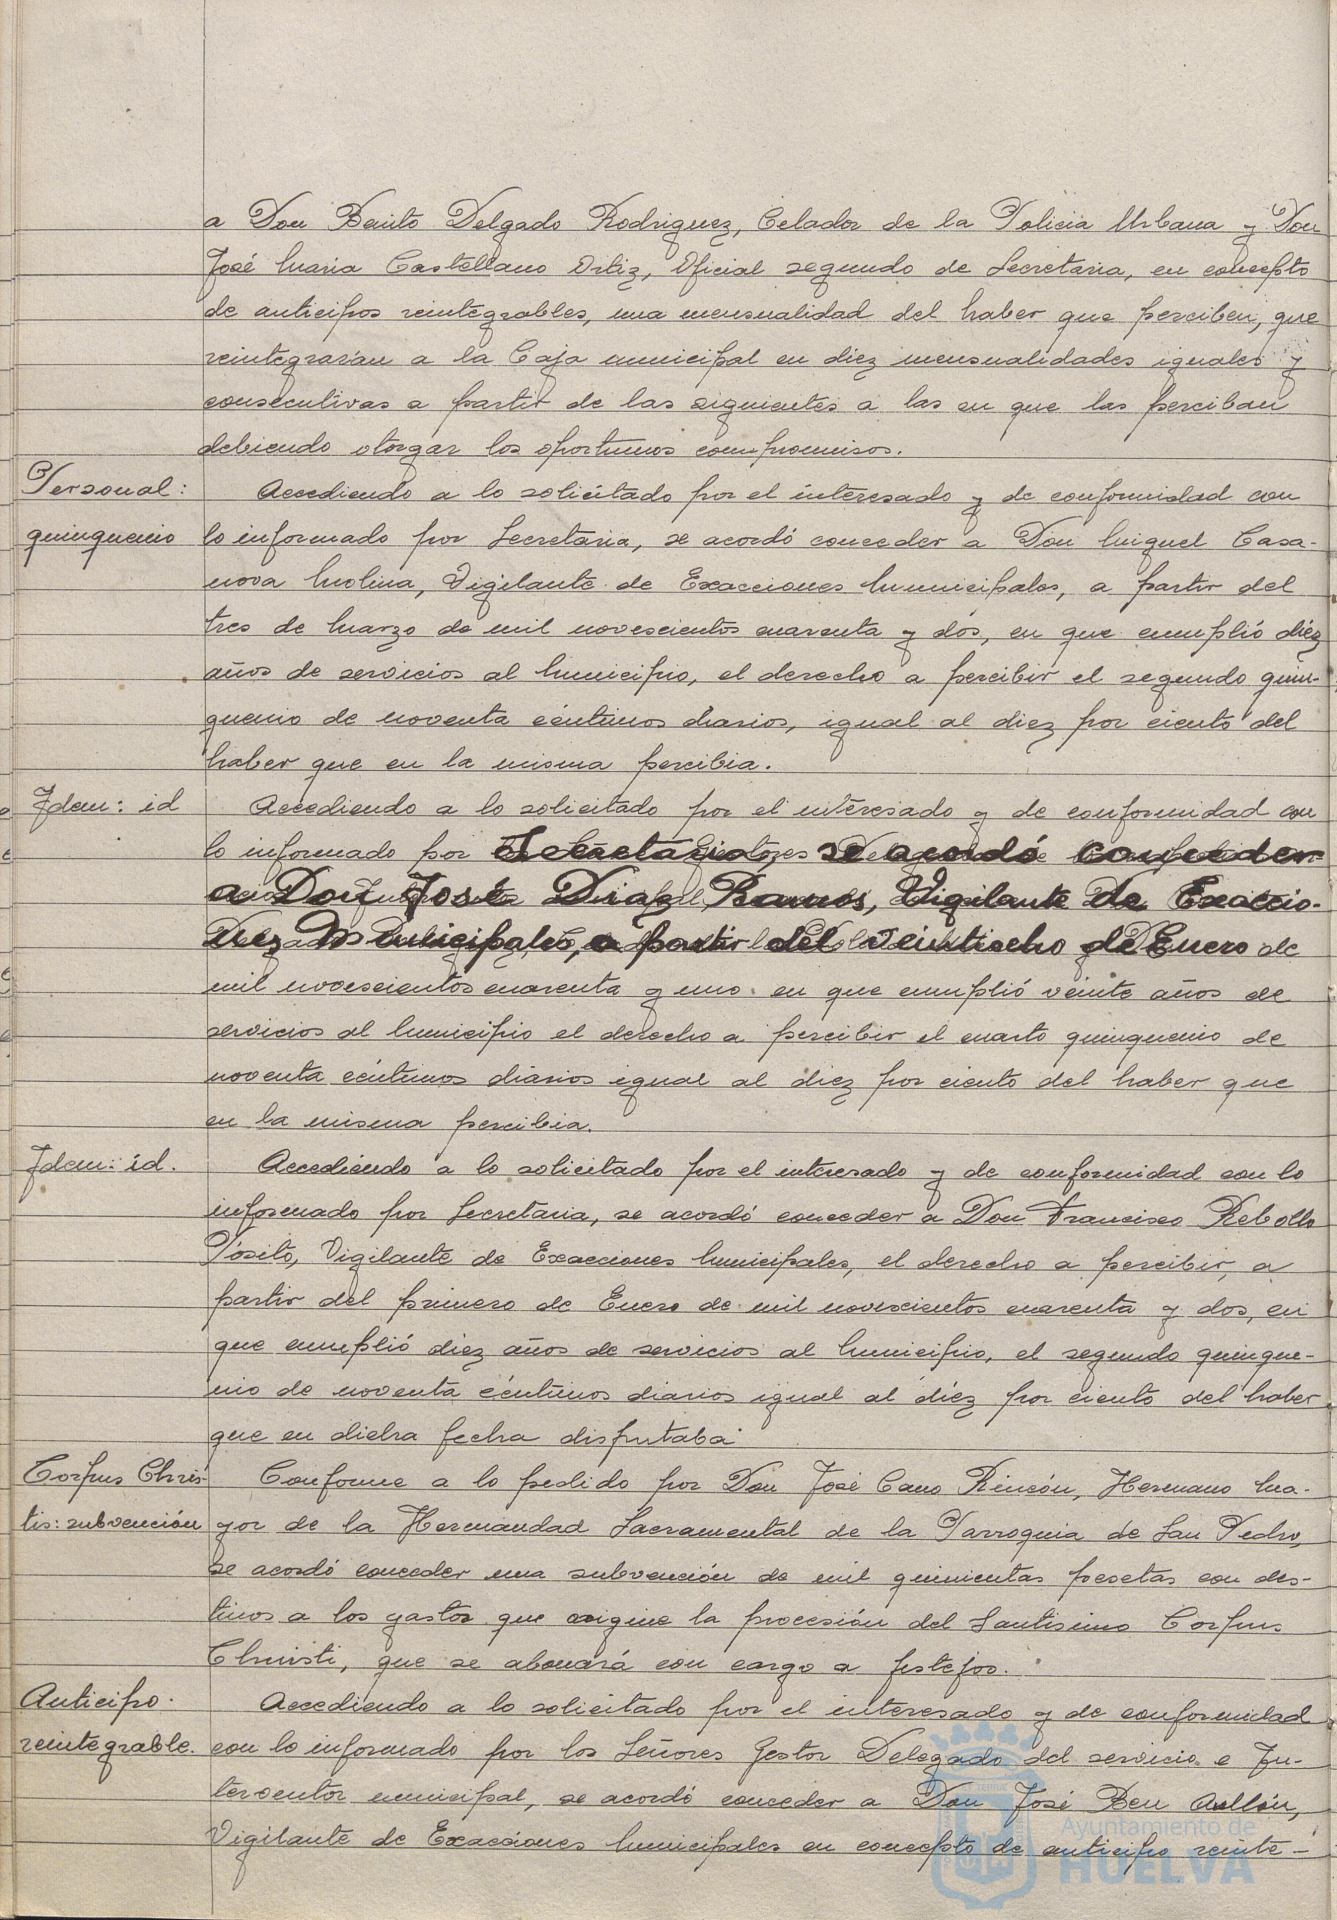 a Don Benito Delgado Rodriguez, Celador de la Policia Urbana y Don
José Maria Castellano Ortiz, Oficial segundo de Secretaria, en concepto
de anticipos reintegrables, una mensualidad del haber que perciben, que
reintegrarán a la Caja municipal en diez mensualidades iguales y
consecutivas a partir de las siguientes a las en que las perciban
debiendo otorgar los oportunos compromisos.
Personal:
quinquenio
Accediendo a lo solicitado por el interesado y de conformidad con
lo informado por Secretaria, se acordó conceder a Don Miguel Casa-
nova Molina, Vigilante de Exacciones Municipales, a partir del
tres de Marzo de mil novescientos cuarenta y dos, en que cumplió diéz
años de servicios al Municipio, el derecho a percibir el segundo quin-
quenio de noventa céntimos diarios, igual al diez por ciento del
haber que en la misma percibia.
Idem: id
Accediendo a lo solicitado por el interesado y de conformidad con
lo informado por Secretaria, se acordó conceder
a Don José Diaz Ramos, Vigilante de Exaccio-
nes Municipales, a partir del veintiocho de Enero de
mil novescientos cuarenta y uno en que cumplió veinte años de
servicios al Municipio el derecho a percibir el cuarto quinquenio de
noventa céntimos diarios igual al diez por ciento del haber que
en la misma percibia.
Idem: id.
Accediendo a lo solicitado por el interesado y de conformidad con lo
informado por Secretaria, se acordó conceder a Don Francisco Rebollo
Pósito, Vigilante de Exacciones Municipales, el derecho a percibir, a
partir del primero de Enero de mil novescientos cuarenta y dos, en
que cumplió diez años de servicios al Municipio, el segundo quinque-
nio de noventa céntimos diarios igual al diéz por ciento del haber
que en dicha fecha disfrutaba
Corpus Chris-
tis: subvención
Conforme a lo pedido por Don José Cano Rincón, Hermano Ma-
yor de la Hermandad Sacramental de la Parroquia de San Pedro,
se acordó conceder una subvención de mil quinientas pesetas con des-
tinos a los gastos que origine la procesión del Santisimo Corpus
Christi, que se abonará con cargo a festejos.
Anticipo
reintegrable.
Accediendo a lo solicitado por el interesado y de conformidad
con lo informado por los Señores Gestor Delegado del servicio e In-
terventor municipal, se acordó conceder a Don José Ben Aullón,
Vigilante de Exacciones Municipales en concepto de anticipo reinte-
Ayuntamiento de
HUELVA